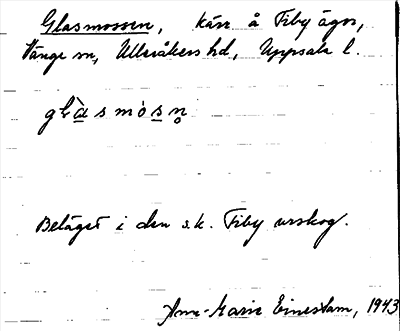 Glasmossen, kärr å Fiby ägor,
Vänge sn, Ulleråkers hd, Uppsala l.
glàsmósn̥
Beläget i den s.k. Fiby urskog.
Ann-Marie Einestam, 1943